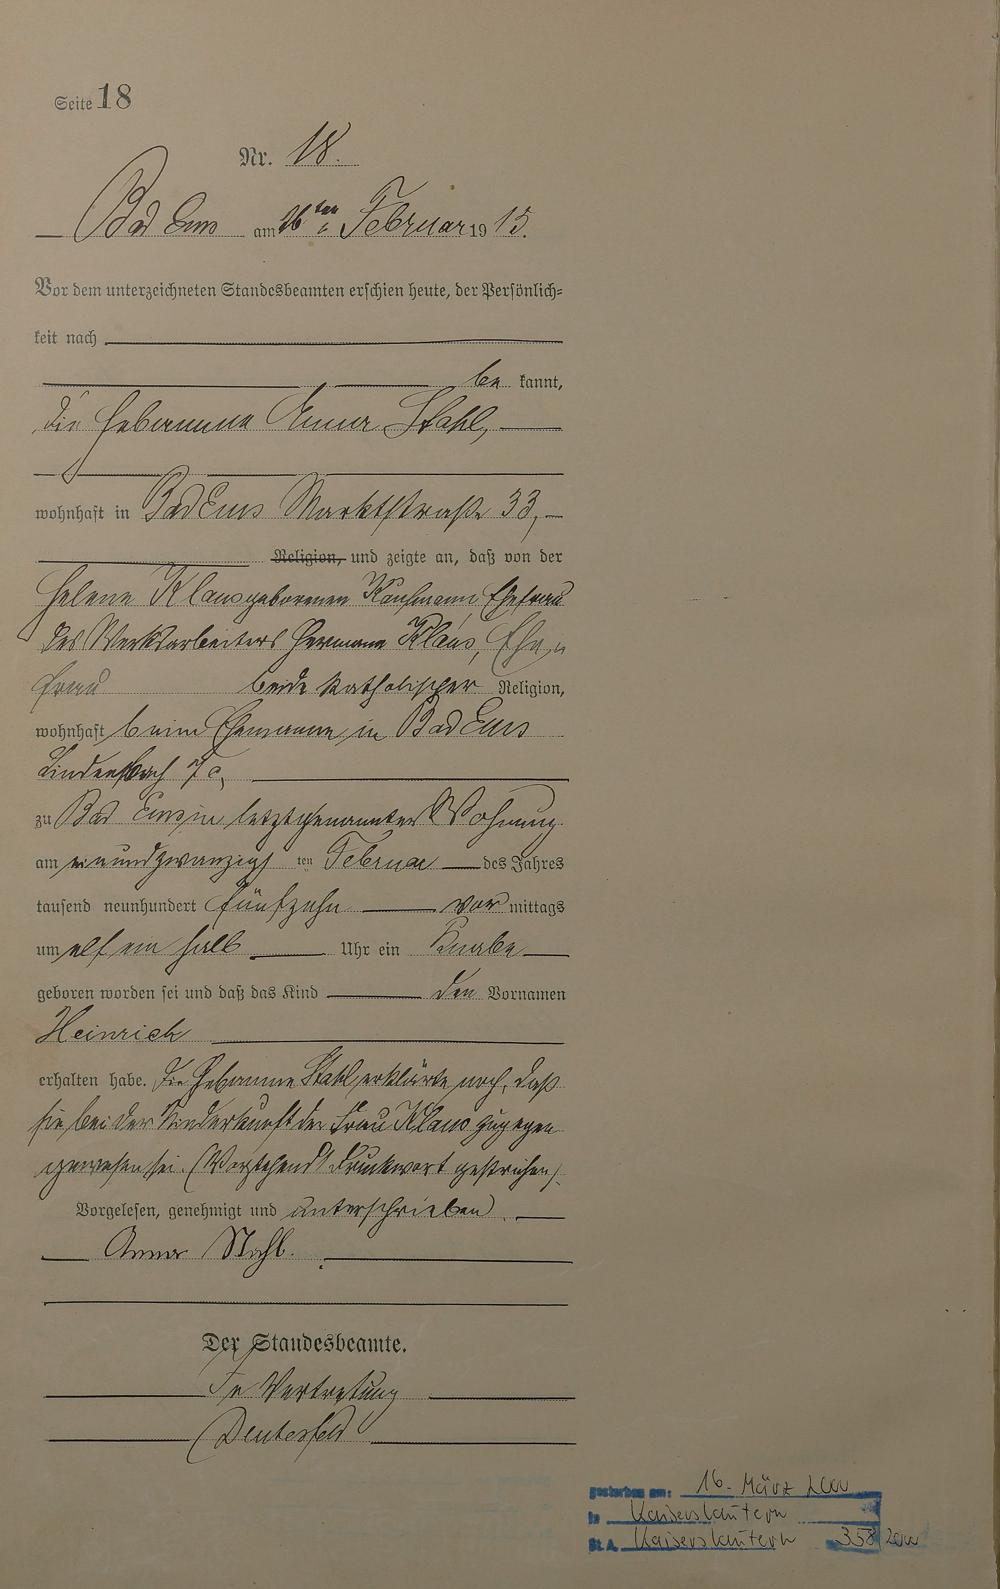 Seite 18
Nr. 18.
Bad Ems am 26ten Februar 1915.
Vor dem unterzeichneten Standesbeamten erschien heute, der Persönlich=
keit nach
be kannt,
die Hebamme Anna Stahl,
wohnhaft in Bad Ems Marktstraße 33,
Religion, und zeigte an, daß von der
Helene Klaus geborenen Kaufmann, Ehefrau
des Werksarbeiters Hermann Klaus, Ehe
frau beide katholischer Religion,
wohnhaft beim Ehemanne in Bad Ems
Lindenbach 7c,
zu Bad Ems in letztgenannter Wohnung
am einundzwanzig ten Februar des Jahres
tausend neunhundert fünfzehn vor mittags
um elf ein halb Uhr ein Knabe
geboren worden sei und daß das Kind den Vornamen
Heinrich
erhalten habe. Die Hebamme Stahl erklärte noch, daß
sie bei der Niederkunft der Frau Klaus zugegen
gewesen sei. (Vorstehend 1 Druckwort gestrichen).
Vorgelesen, genehmigt und unterschrieben
Anna Stahl.
Der Standesbeamte.
In Vertretung
gestorben am: 16. März 2000
in Kaiserslautern
St.A. Kaiserslautern 358/2000